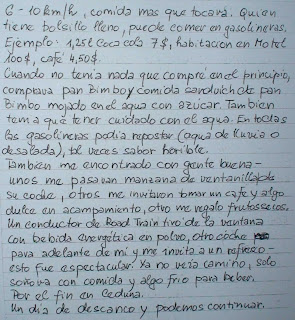 6-10 km/h, comida mas que tocará. Quien
tiene bolsillo lleno, puede comer en gasolineras.
Ejemplo: 1,25l Coca cola 7$, habitacion en Motel
100$, café 4,50$.
Cuando no tenia nada que compré en el principio,
comprava pan Bimbo y comida sanduich de pan
Bimbo mojado en el agua con azucar. Tambien
tenia que tener cuidado con el agua. En todas
las gasolineras podia repostar (agua de lluvia o
desalada), tal veces sabor horible.
Tambien me encontrado con gente buena -
unos me pasavan manzana de ventanilla de
su coche, otros me invitaron tomar un cafe y algo
dulce en acampamiento, otro me regalo frutos secos.
Un conductor de Road Train tivo de la ventana
con bebida energética en polvo, otro coche
para adelante de mi y me invito a un refresco -
esto fue espectacular. Ya no veia camino, solo
soñava con comida y algo frio para beber.
Por el fin en Ceduna.
Un dia de descanco y podemos continuar.